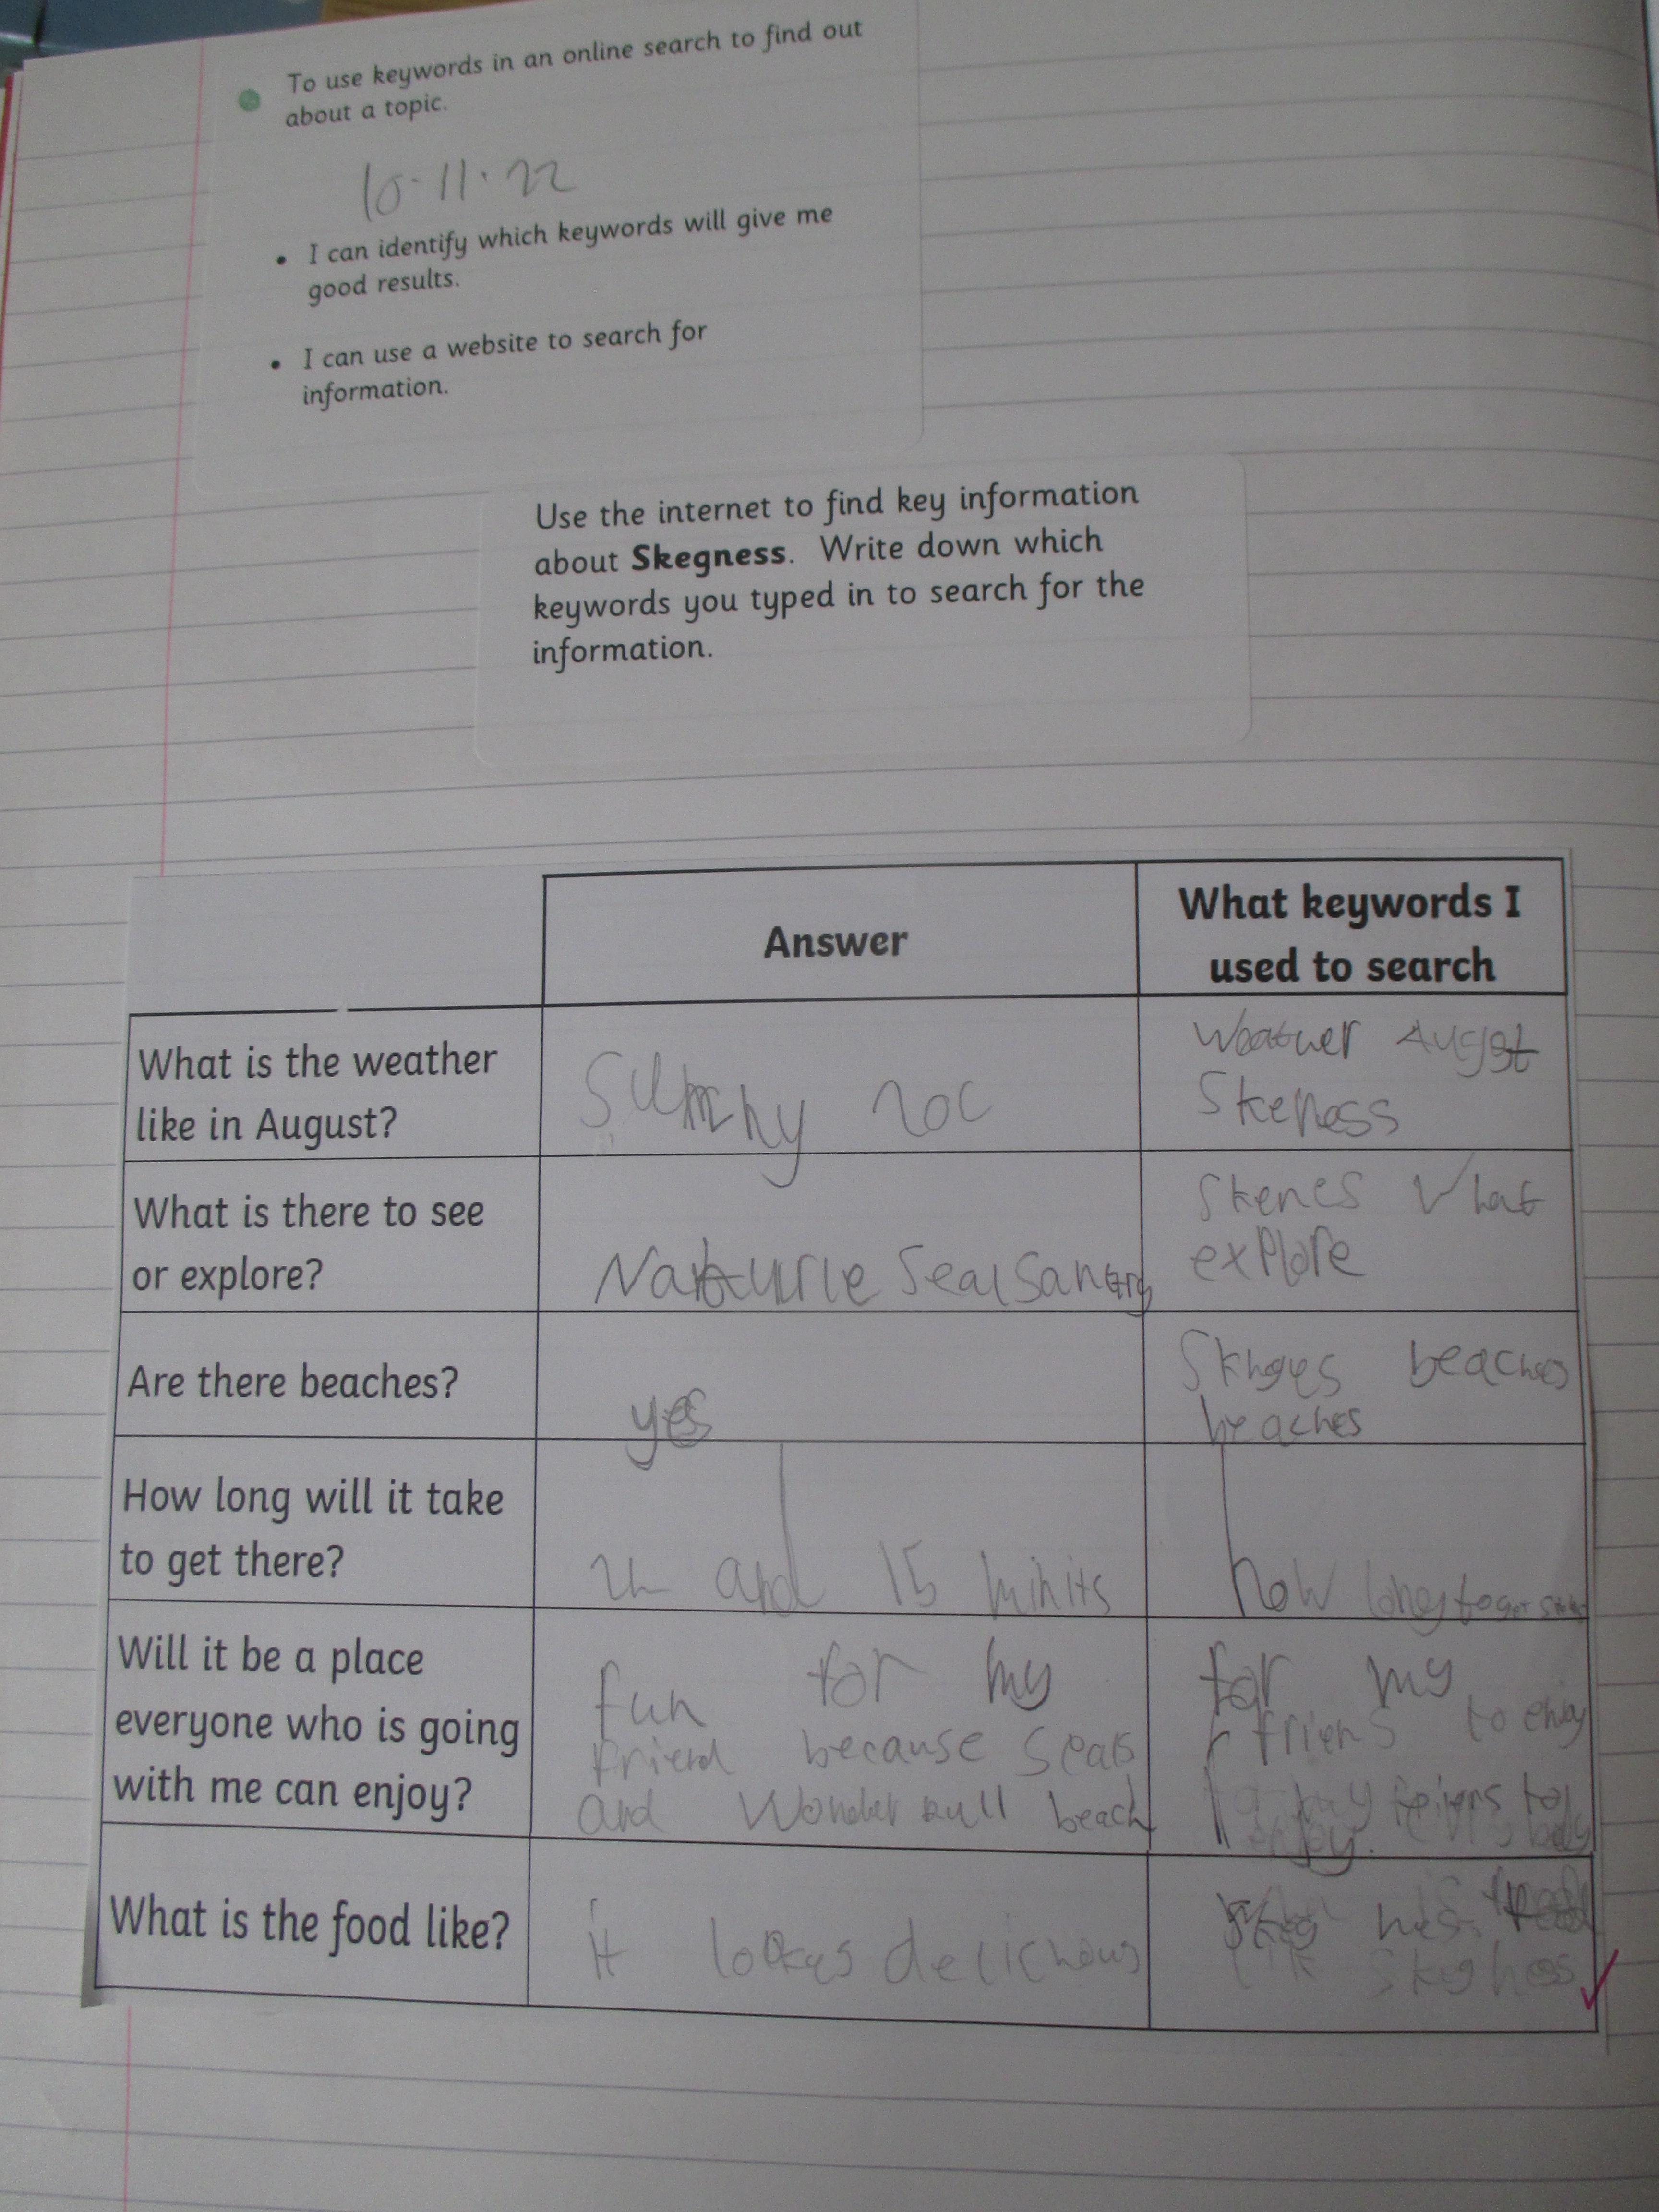 To use keywords in an online search to find out
about a topic.
10.11.22
• I can identify which keywords will give me
good results.
• I can use a website to search for
information.
Use the internet to find key information
about Skegness. Write down which
keywords you typed in to search for the
information.
Answer
What keywords I
used to search
What is the weather
like in August?
Sunny 20c
Augst
Skeness
What is there to see
or explore?
Seal
Skenes What
explore
Are there beaches?
yes
beaches
beaches
How long will it take
to get there?
and 15 minits
how long to get
Will it be a place
everyone who is going
with me can enjoy?
fun for my
friend because seals
and beach
for my
friens to enjoy
What is the food like?
it
Skegness